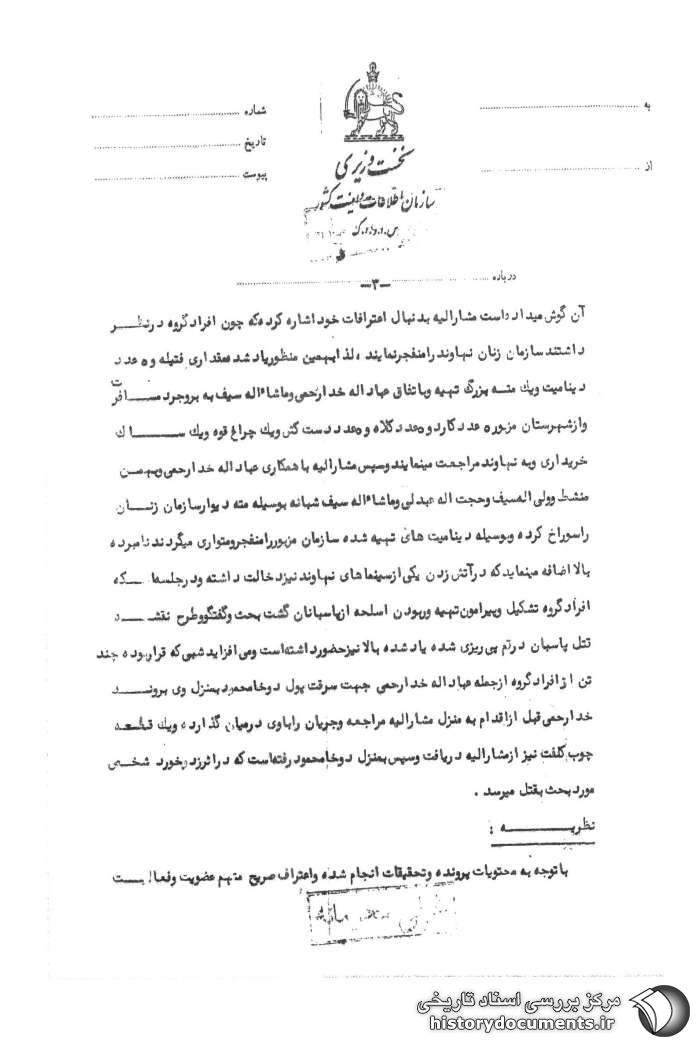 به
از
شماره
تاریخ
پیوست
نخست وزیری
سازمان اطلاعات و امنیت کشور
س.ا.و.ا.ک
درباره
-۳-
آن گوش میداد است مشارالیه بدنبال اعترافات خود اشاره کرده که چون افراد گروه در نظر
داشتند سازمان زنان نهاوند را منفجر نمایند ، لذا بهمین منظور یاد شده مقداری فتیله و ه عدد
دینامیت ویک مته بزرگ تهیه وباتفاق عباد اله خدارحمی وماشاءاله سیف به بروجرد مسافرت
وازشهرستان مزبوره عدد کارد و ه عدد کلاه و ه عدد دست کش ویک چراغ قوه ویک ساک
خریداری وبه نهاوند مراجعت مینمایند وسپس مشارالیه با همکاری عباد اله خدارحمی وبهمن
منشط وولی اله سیف وحجت اله عبدلی وماشاءاله سیف شبانه بوسیله مته دیوار سازمان زنان
را سوراخ کرده وبوسیله دینامیت های تهیه شده سازمان مزبور را منفجر ومتواری میگردند نامبرده
بالا اضافه مینماید که در آتش زدن یکی از سینماهای نهاوند نیز دخالت داشته ودر جلسه ای که
افراد گروه تشکیل وپیرامون تهیه وربودن اسلحه از پاسبانان گشت بحث وگفتگو وطرح نقشه
قتل پاسبان در قم پی ریزی شده یاد شده بالا نیز حضور داشته است ومی افزاید شبی که قرار بوده چند
تن از افراد گروه ازجمله عباد اله خدارحمی جهت سرقت پول دوخا محمود بمنزل وی بروند
خدارحمی قبل از اقدام به منزل مشارالیه مراجعه وجریان را باوی درمیان گذارده ویک قطعه
چوب کلفت نیز از مشارالیه دریافت وسپس بمنزل دوخا محمود رفته است که در اثر زد وخورد شخص
مورد بحث بقتل میرسد .
نظریه :
با توجه به محتویات پرونده وتحقیقات انجام شده واعتراف صریح متهم عضویت وفعالیت
مرکز بررسی اسناد تاریخی
historydocuments.ir